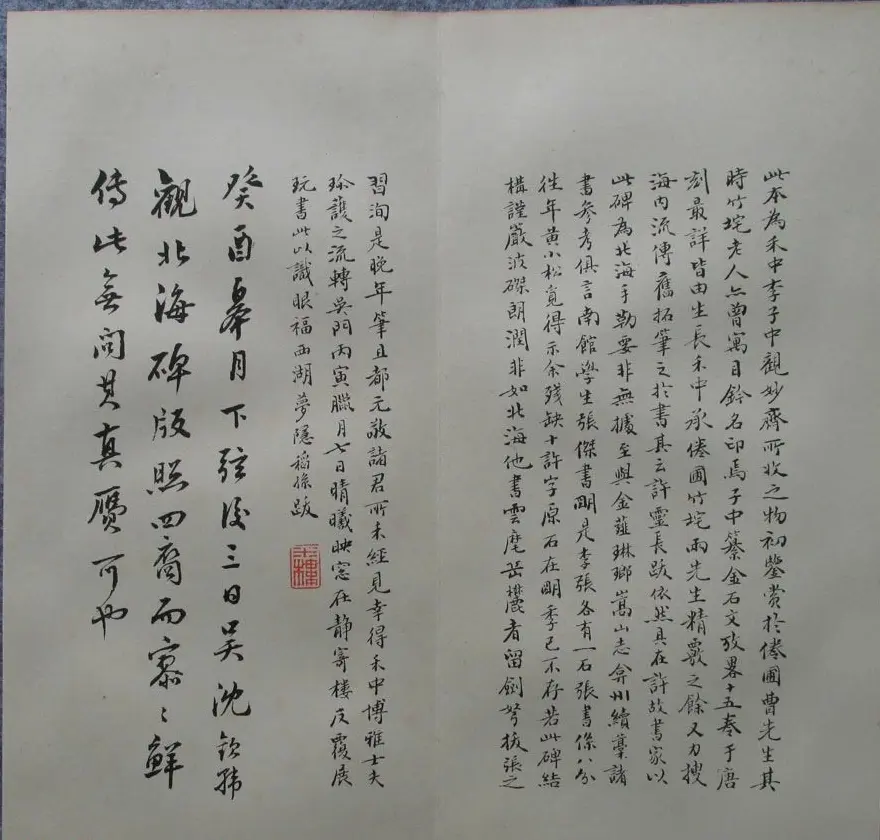 此本為禾中李子中觀妙齋所收之物初鑒賞於倦圃曹先生其
時竹垞老人亦曾寓目鈐名印焉子中纂金石文攷畧十五卷于唐
刻最詳皆由生長禾中承倦圃竹垞兩先生精覈之餘又力搜
海内流傳舊拓筆之於書其云許靈長跋依然具在許故書家以
此碑為北海手勒要非無據至與金薤琳瑯嵩山志弇州續藁諸
書參考俱言南館學生張傑書明是李張各有一石張書係八分
往年黃小松覓得示余殘缺十許字原石在明季已不存若此碑結
構謹嚴波磔朗潤非如北海他書雲麾岳麓者留劍弩拔張之
習洵是晚年筆且都元敬諸君所未經見幸得禾中博雅士夫
珍護之流轉吳門丙寅臘月七日晴曦映窓在静寄樓反覆展
玩書此以識眼福西湖夢隱稻孫跋
癸酉皋月下弦後三日吴沈欽韩
觀北海碑版照四裔而寥〻鮮
傳此無問其真贗可也